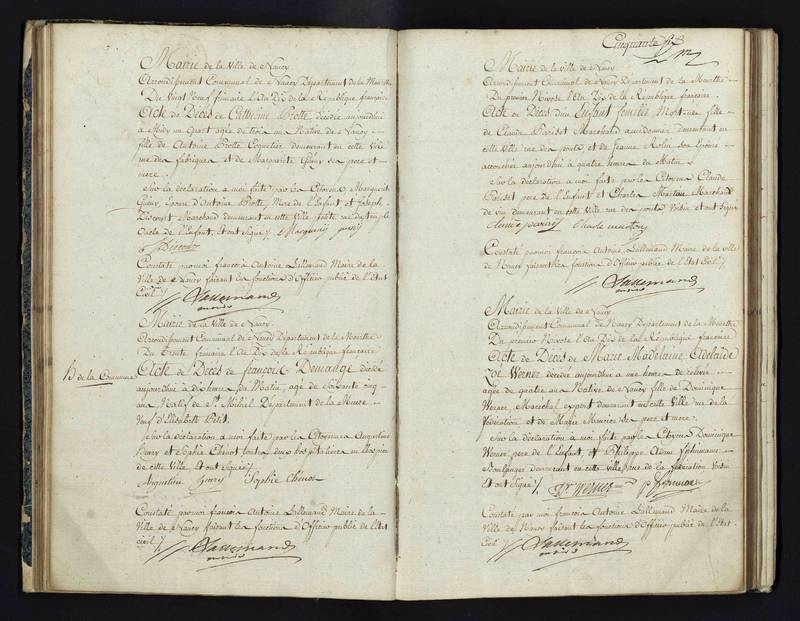 Mairie de la Ville de Nancy
Arrondissement Communal de Nancy Département de la Meurthe
Du Vingt Neuf frimaire l'an Dix de la République française
Acte de Décès de Catherine Brotte, décédée aujourd'hui
à Midy un quart agée de trois ans Native de Nancy
fille de Antoine Brotte Coquetier demeurant en cette Ville
rue des fabriques et de Marguerite Gény ses pere et
mere.
Sur la déclaration a moi faite par les Citoyens Marguerite
Gény, Epouse d'Antoine Brotte, Mere de l'Enfant, et Joseph
Marchand demeurant en cette Ville petite rue
Oncle de l'Enfant, et ont signé
Constaté par moi françois Antoine Lallemand Maire de la
Ville de Nancy faisant les fonctions d'Officier public de l'Etat
Civil
Lallemand
Mairie de la Ville de Nancy
Arrondissement Communal de Nancy Département de la Meurthe
Du Trente frimaire l'an Dix de la République française
B de la Commune
Acte de Décès de françois décédé
aujourd'hui à dix heures du Matin, agé de soixante cinq
ans Natif de St Mihiel Département de la Meuse
Veuf d'Elisabeth Petit.
Sur la déclaration a moi faite par les Citoyennes Augustine
Henry et Sophie Chenot toutes deux hospitalieres
de cette Ville et ont signé
Augustine henry Sophie Chenot
Constaté par moi françois Antoine Lallemand Maire de la
Ville de Nancy faisant les fonctions d'Officier public de l'Etat
civil
Lallemand
Cinquante
Mairie de la Ville de Nancy
Arrondissement Communal de Nancy Département de la Meurthe
Du premier Nivose l'an Dix de la République française.
Acte de Décès d'un Enfant femelle Mort née fille
de Claude Parisot Marchand amidonnier demeurant en
cette Ville rue des ponts et de Jeanne Rolin son Epouse
accouchée aujourd'hui à quatre heures du Matin
Sur la déclaration a moi faite par les Citoyens Claude
Parisot pere de l'Enfant et Charles Marchand
de vin demeurant en cette Ville rue des ponts Voisin et ont signé
Constaté par moi françois Antoine Lallemand Maire de la ville
de Nancy faisant les fonctions d'Officier public de l'Etat Civil
Lallemand
Mairie de la Ville de Nancy
Arrondissement Communal de Nancy Département de la Meurthe
Du premier Nivose l'an Dix de la République française
Acte de Décès de Marie Madelaine Adelaïde
Zoé Werner décédée aujourd'hui a une heure de relevée
agée de quatre ans Native de Nancy fille de Dominique
Werner Maréchal expert demeurant en cette Ville rue de la
fédération et de Marie Maurice ses pere et mere.
Sur la déclaration a moi faite par les Citoyens Dominique
Werner pere de l'Enfant, et Philippe Adam
Boulanger demeurant en cette Ville rue de la fédération Voisin
et ont signé
D. Werner
Constaté par moi françois Antoine Lallemand Maire de la
Ville de Nancy faisant les fonctions d'Officier public de l'Etat
Civil
Lallemand